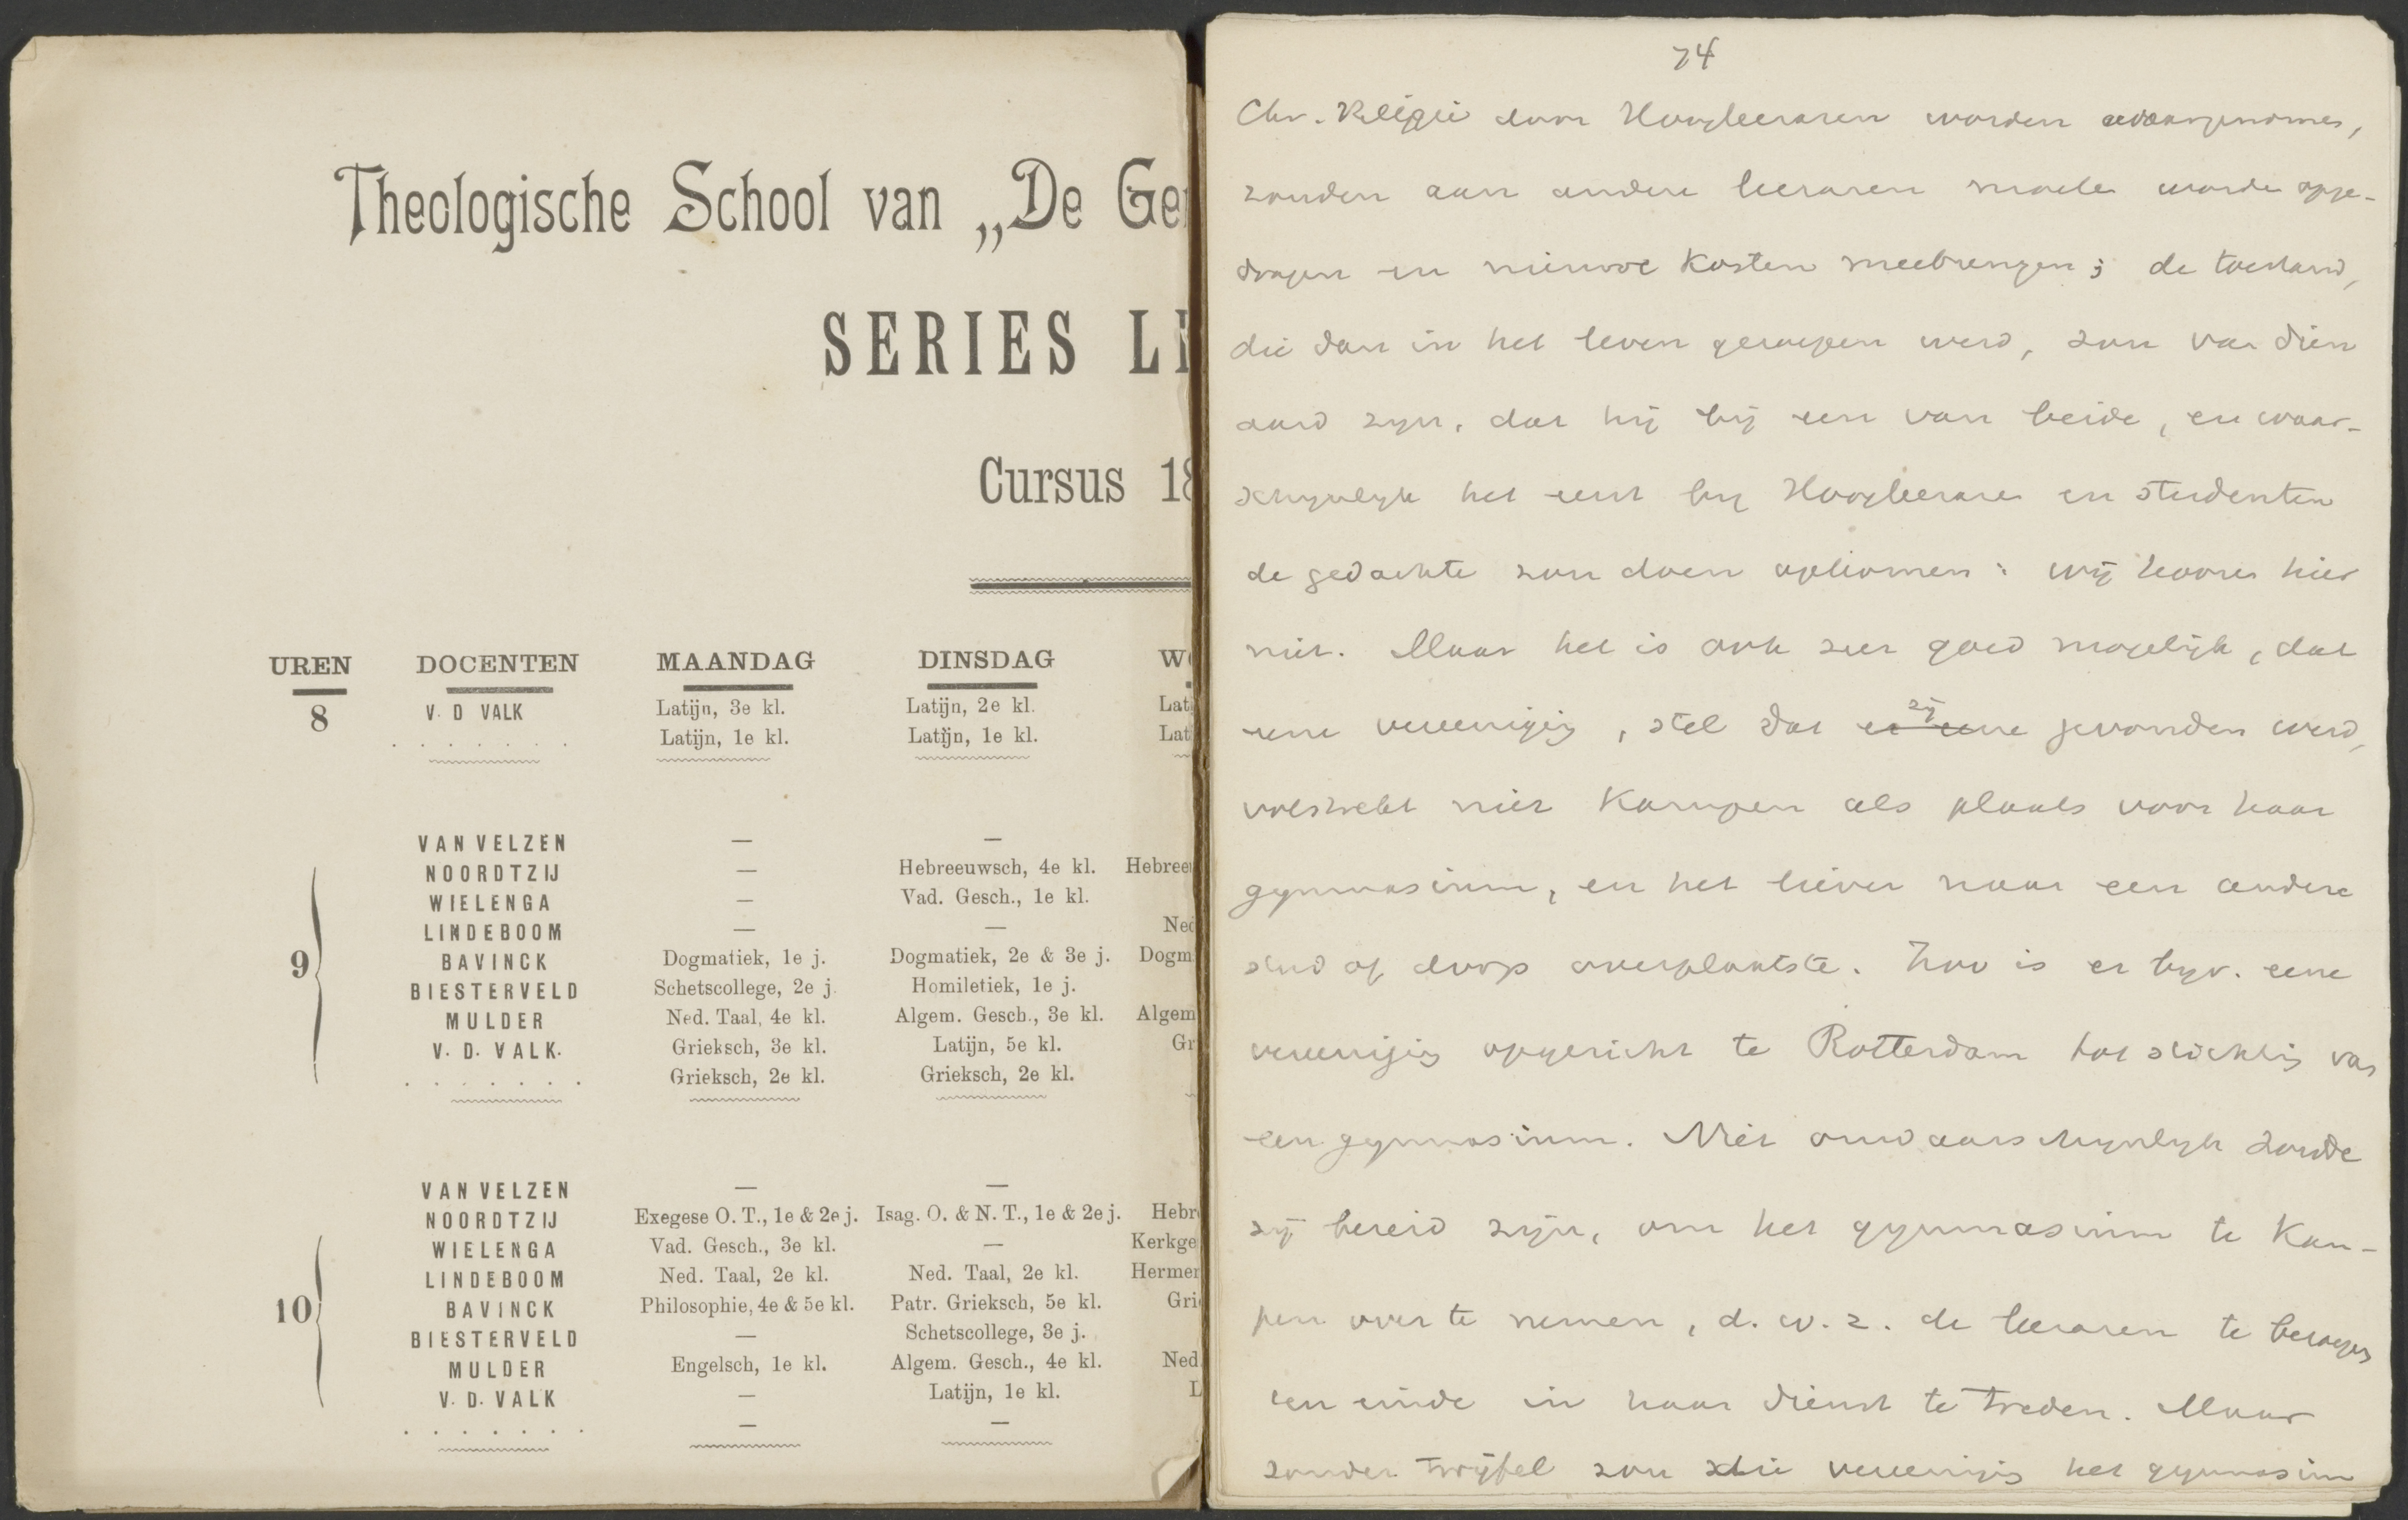 Theologische School van „De Ge
SERIES L
Cursus 18
UREN DOCENTEN MAANDAG DINSDAG W
8 V. D VALK Latijn, 3e kl. Latijn, 2e kl. Lat
. . . . . . . Latijn, 1e kl. Latijn, 1e kl. Lat
9
VAN VELZEN — —
NOORDTZIJ — Hebreeuwsch, 4e kl. Hebree
WIELENGA — Vad. Gesch., 1e kl.
LINDEBOOM — — Ned
BAVINCK Dogmatiek, 1e j. Dogmatiek, 2e & 3e j. Dogm
BIESTERVELD Schetscollege, 2e j. Homiletiek, 1e j.
MULDER Ned. Taal, 4e kl. Algem. Gesch., 3e kl. Algem
V. D. VALK. Grieksch, 3e kl. Latijn, 5e kl. Gr
. . . . . . . Grieksch, 2e kl. Grieksch, 2e kl.
10
VAN VELZEN — —
NOORDTZIJ Exegese O. T., 1e & 2e j. Isag. O. & N. T., 1e & 2e j. Hebr
WIELENGA Vad. Gesch., 3e kl. — Kerkge
LINDEBOOM Ned. Taal, 2e kl. Ned. Taal, 2e kl. Hermen
BAVINCK Philosophie, 4e & 5e kl. Patr. Grieksch, 5e kl. Gri
BIESTERVELD — Schetscollege, 3e j.
MULDER Engelsch, 1e kl. Algem. Gesch., 4e kl. Ned.
V. D. VALK — Latijn, 1e kl. L
. . . . . . . — —
74
Chr. Religie door Hoogleeraren worden waargenomen,
zouden aan andere leeraren moeten worden opge-
dragen en nieuwe kosten meebrengen; de toestand,
die dan in het leven geroepen werd, zou van dien
aard zijn, dat hij bij een van beide, en waar-
schijnlijk het eerst bij Hoogleeraren en studenten
de gedachte zou doen opkomen: wij hooren hier
niet. Maar het is ook zeer goed mogelijk, dat
eene vereeniging, stel dat er eene zij gevonden werd,
volstrekt niet Kampen als plaats voor haar
gymnasium, en het liever naar een andere
stad of dorp overplaatste. Zoo is er bijv. eene
vereeniging opgericht te Rotterdam tot stichting van
een gymnasium. Niet onwaarschijnlijk zoude
zij bereid zijn, om het gymnasium te Kam-
pen over te nemen, d. w. z. de leeraren te beroepen
ten einde in haar dienst te treden. Maar
zonder twijfel zou die vereeniging het gymnasium